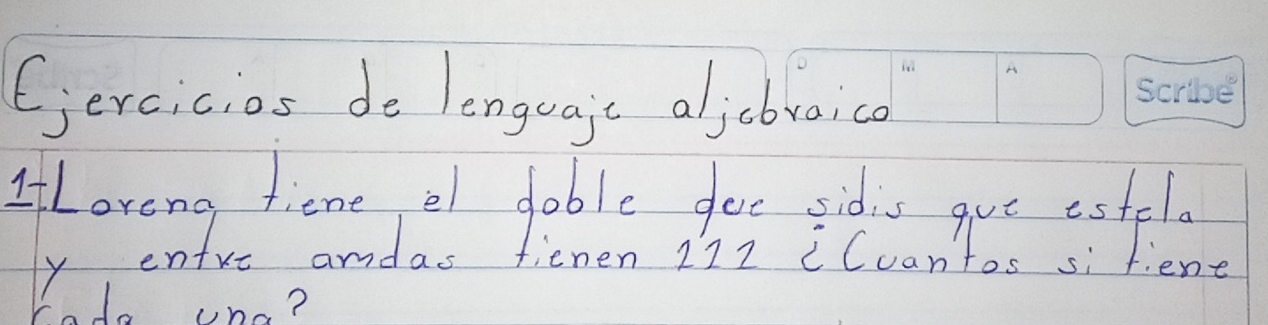 Ejercicios de lenguaje aljebraico
D M A
Scribe®
1-Lorena tiene el doble de sidis que estela
y entre amdas tienen 111 ¿Cuantos si tiene
cada una?